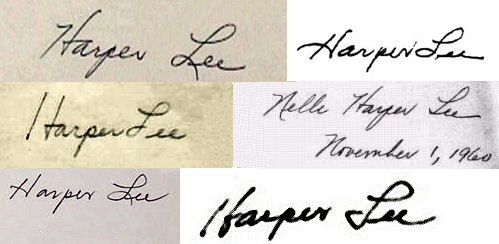 Harper Lee
Harper Lee
Harper Lee
Nelle Harper Lee
November 1, 1960
Harper Lee
Harper Lee